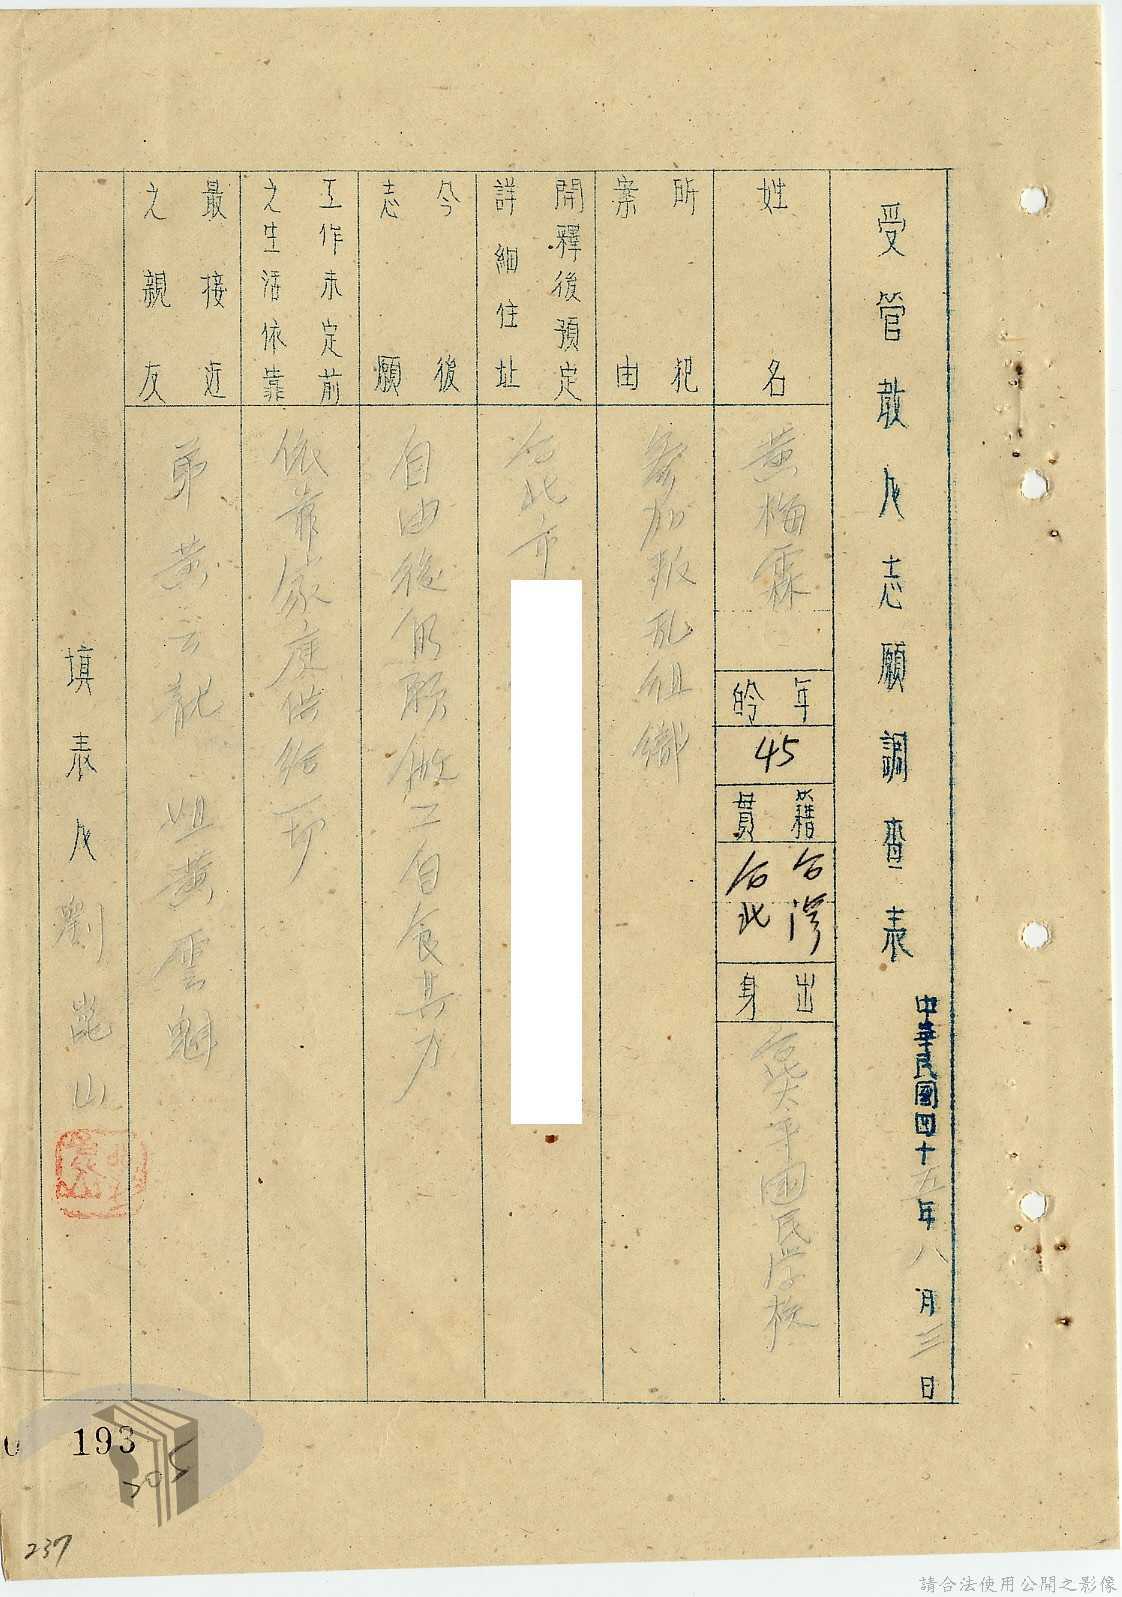 受管敢人志願調查表
中華民國四十五年八月三日
姓名
黃梅霖
年齡
45
籍貫
台灣
台北
出身
台北太平国民学校
所犯案由
參加叛乱组織
開釋後預定詳細住址
台北市
今後志願
自由後仍願做工自食其力
工作未定前之生活依靠
依靠家庭供给
最接近之親友
弟 黃云龍 姐 黃雲魁
填表人 劉崑山
193
205
237
請合法使用公開之影像